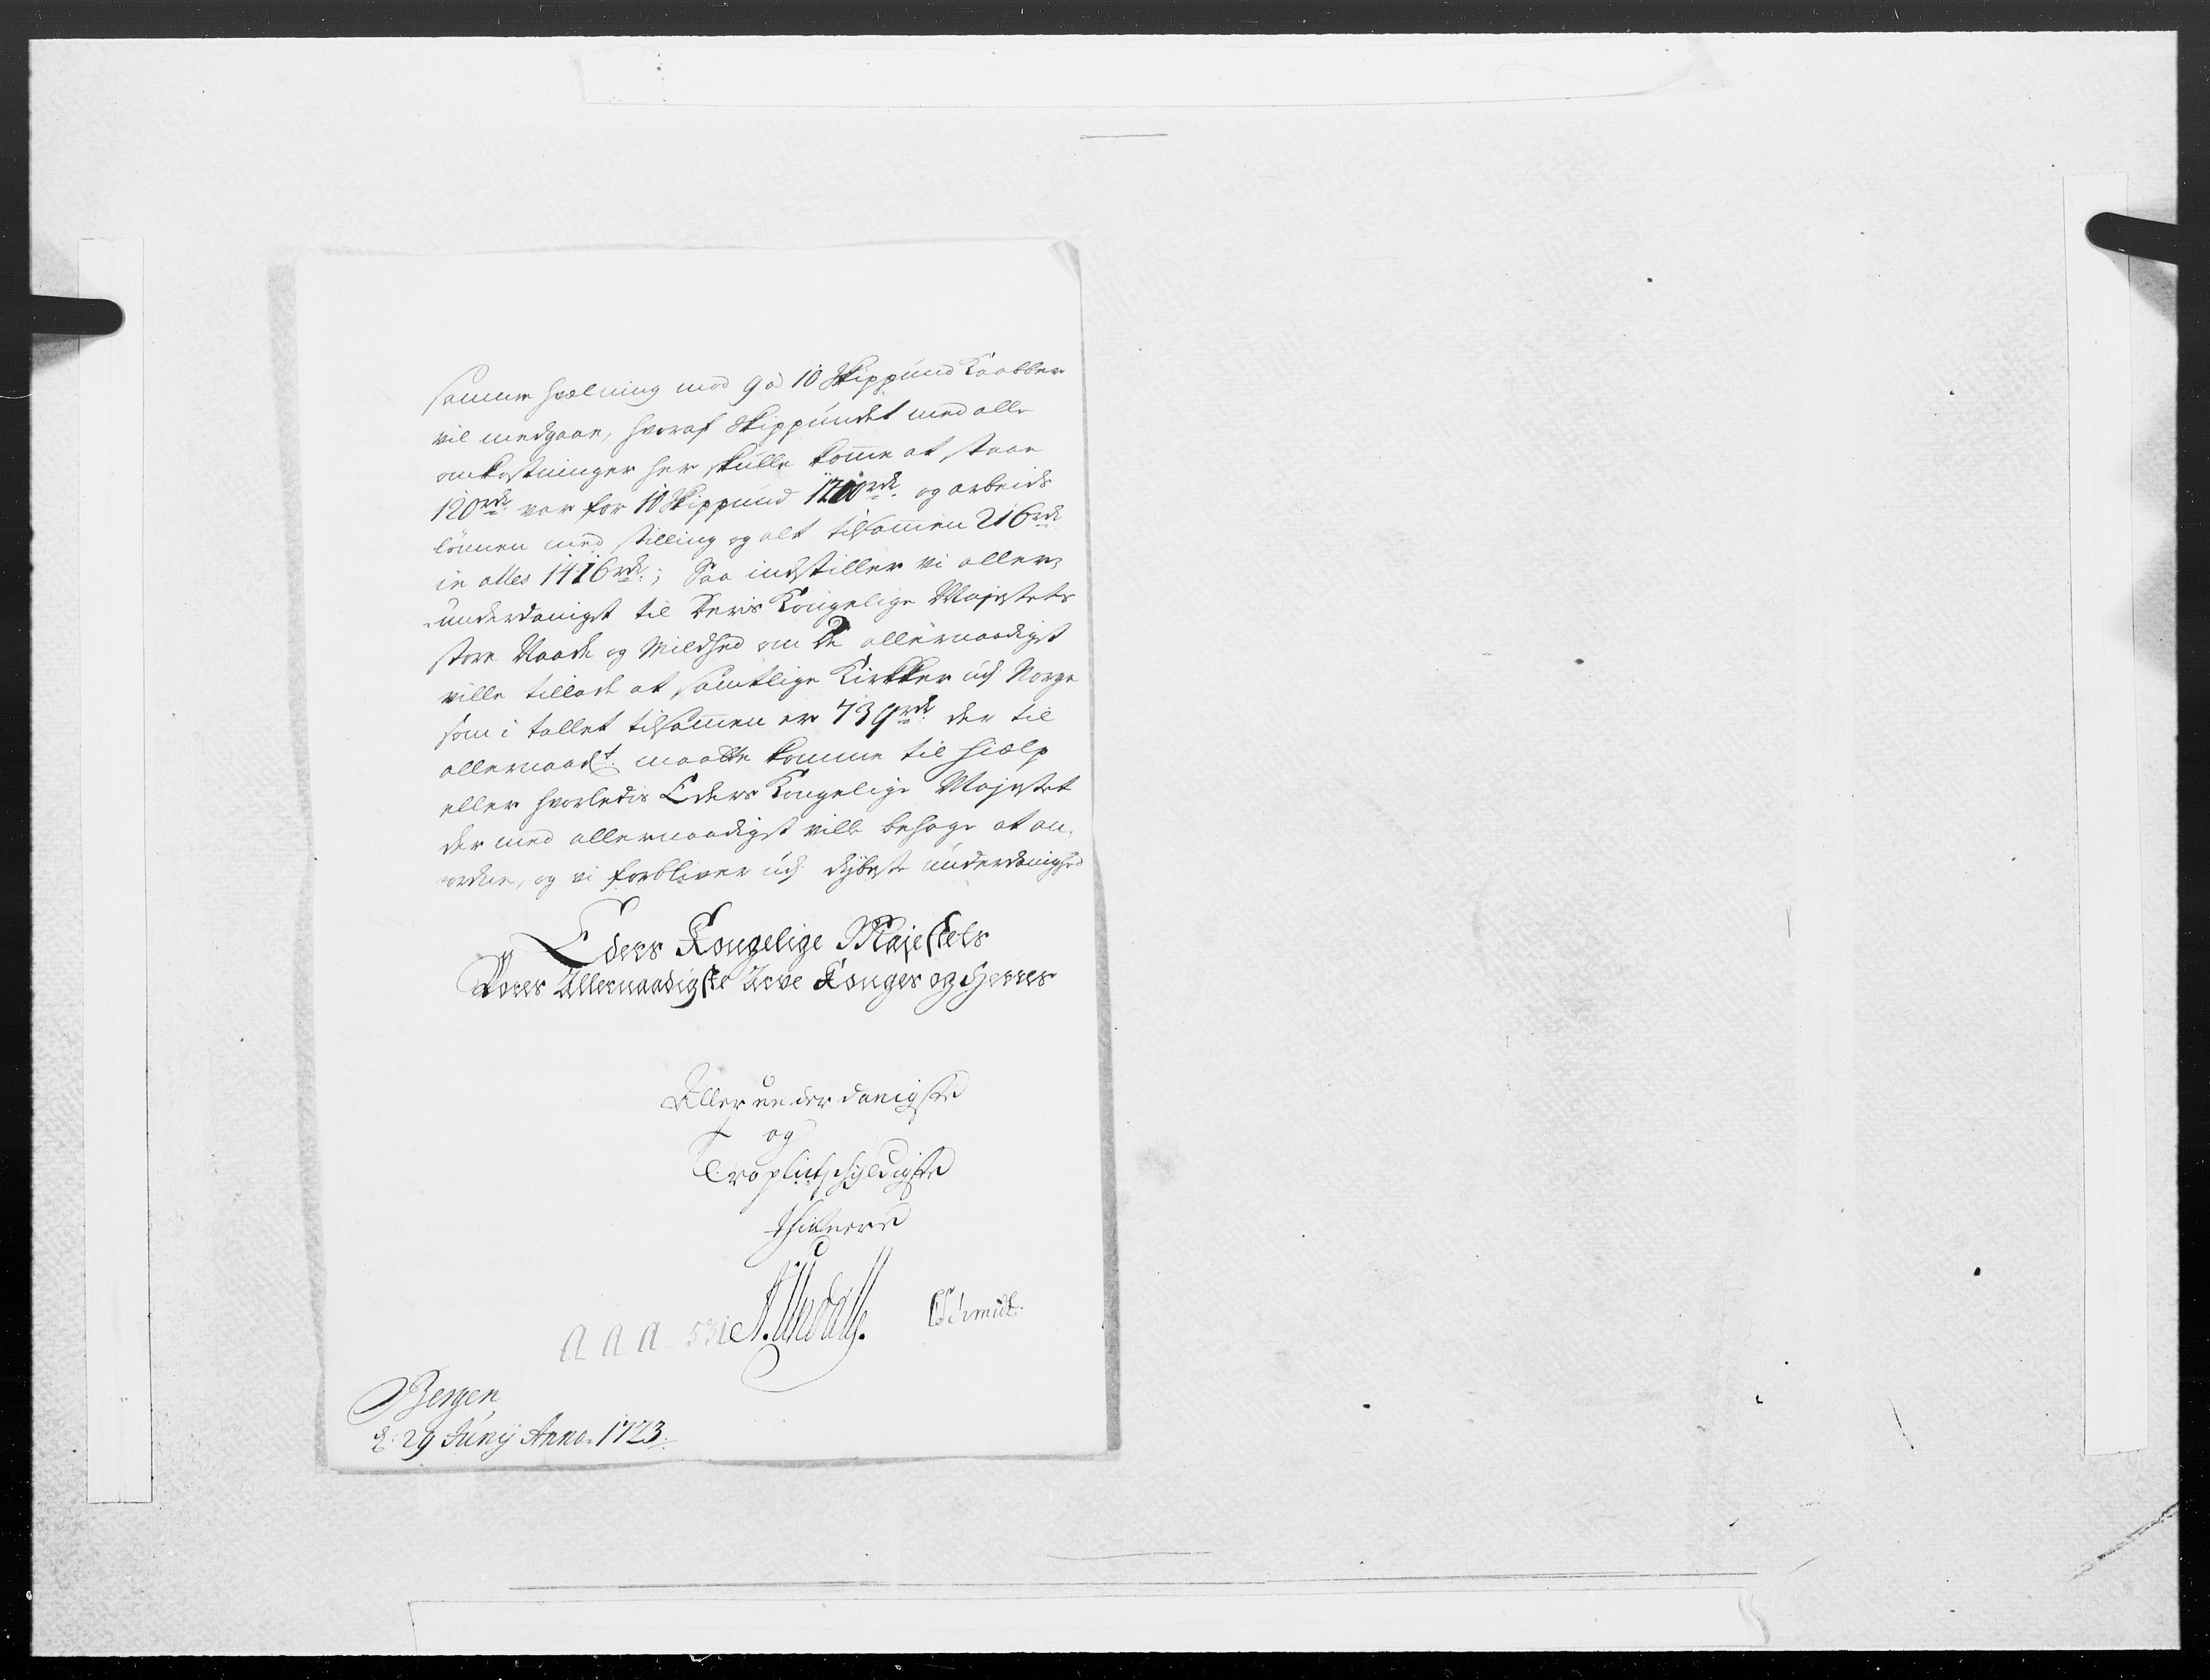 samme hvælning med 9 à 10 Skippund Kaabber
vil medgaae, hvoraf Skippundet med alle
omkostninger her skulle komme at staae
120 rdr. var for 10 Skippund 1200 rdr. og arbeids
lönnen med stilling og alt tilsammen 216 rdr.
in alles 1416 rdr.; Saa indstiller vi aller=
underdanigst til Deris Kongelige Majestets
store Naade og Mildhed om De allernaadigst
ville tillade at samtlige Kirkker udj Norge
som i tallet tilsammen er 739 rdr. der til
allernaadt. maatte komme til hielp
eller hvorledis Eders Kongelige Majestet
der med allernaadigst ville behage at an,
ordne, og vi forbliver udj dybeste underdanighed
Eders Kongelige Majestets
Vores Allernaadigste Arve Konges og Herres
Allerunderdanigste
og
Tropligtschyldigste
Thienere
A. Undall. CSchmidt.
Bergen
d: 29 Junÿ Anno. 1723.